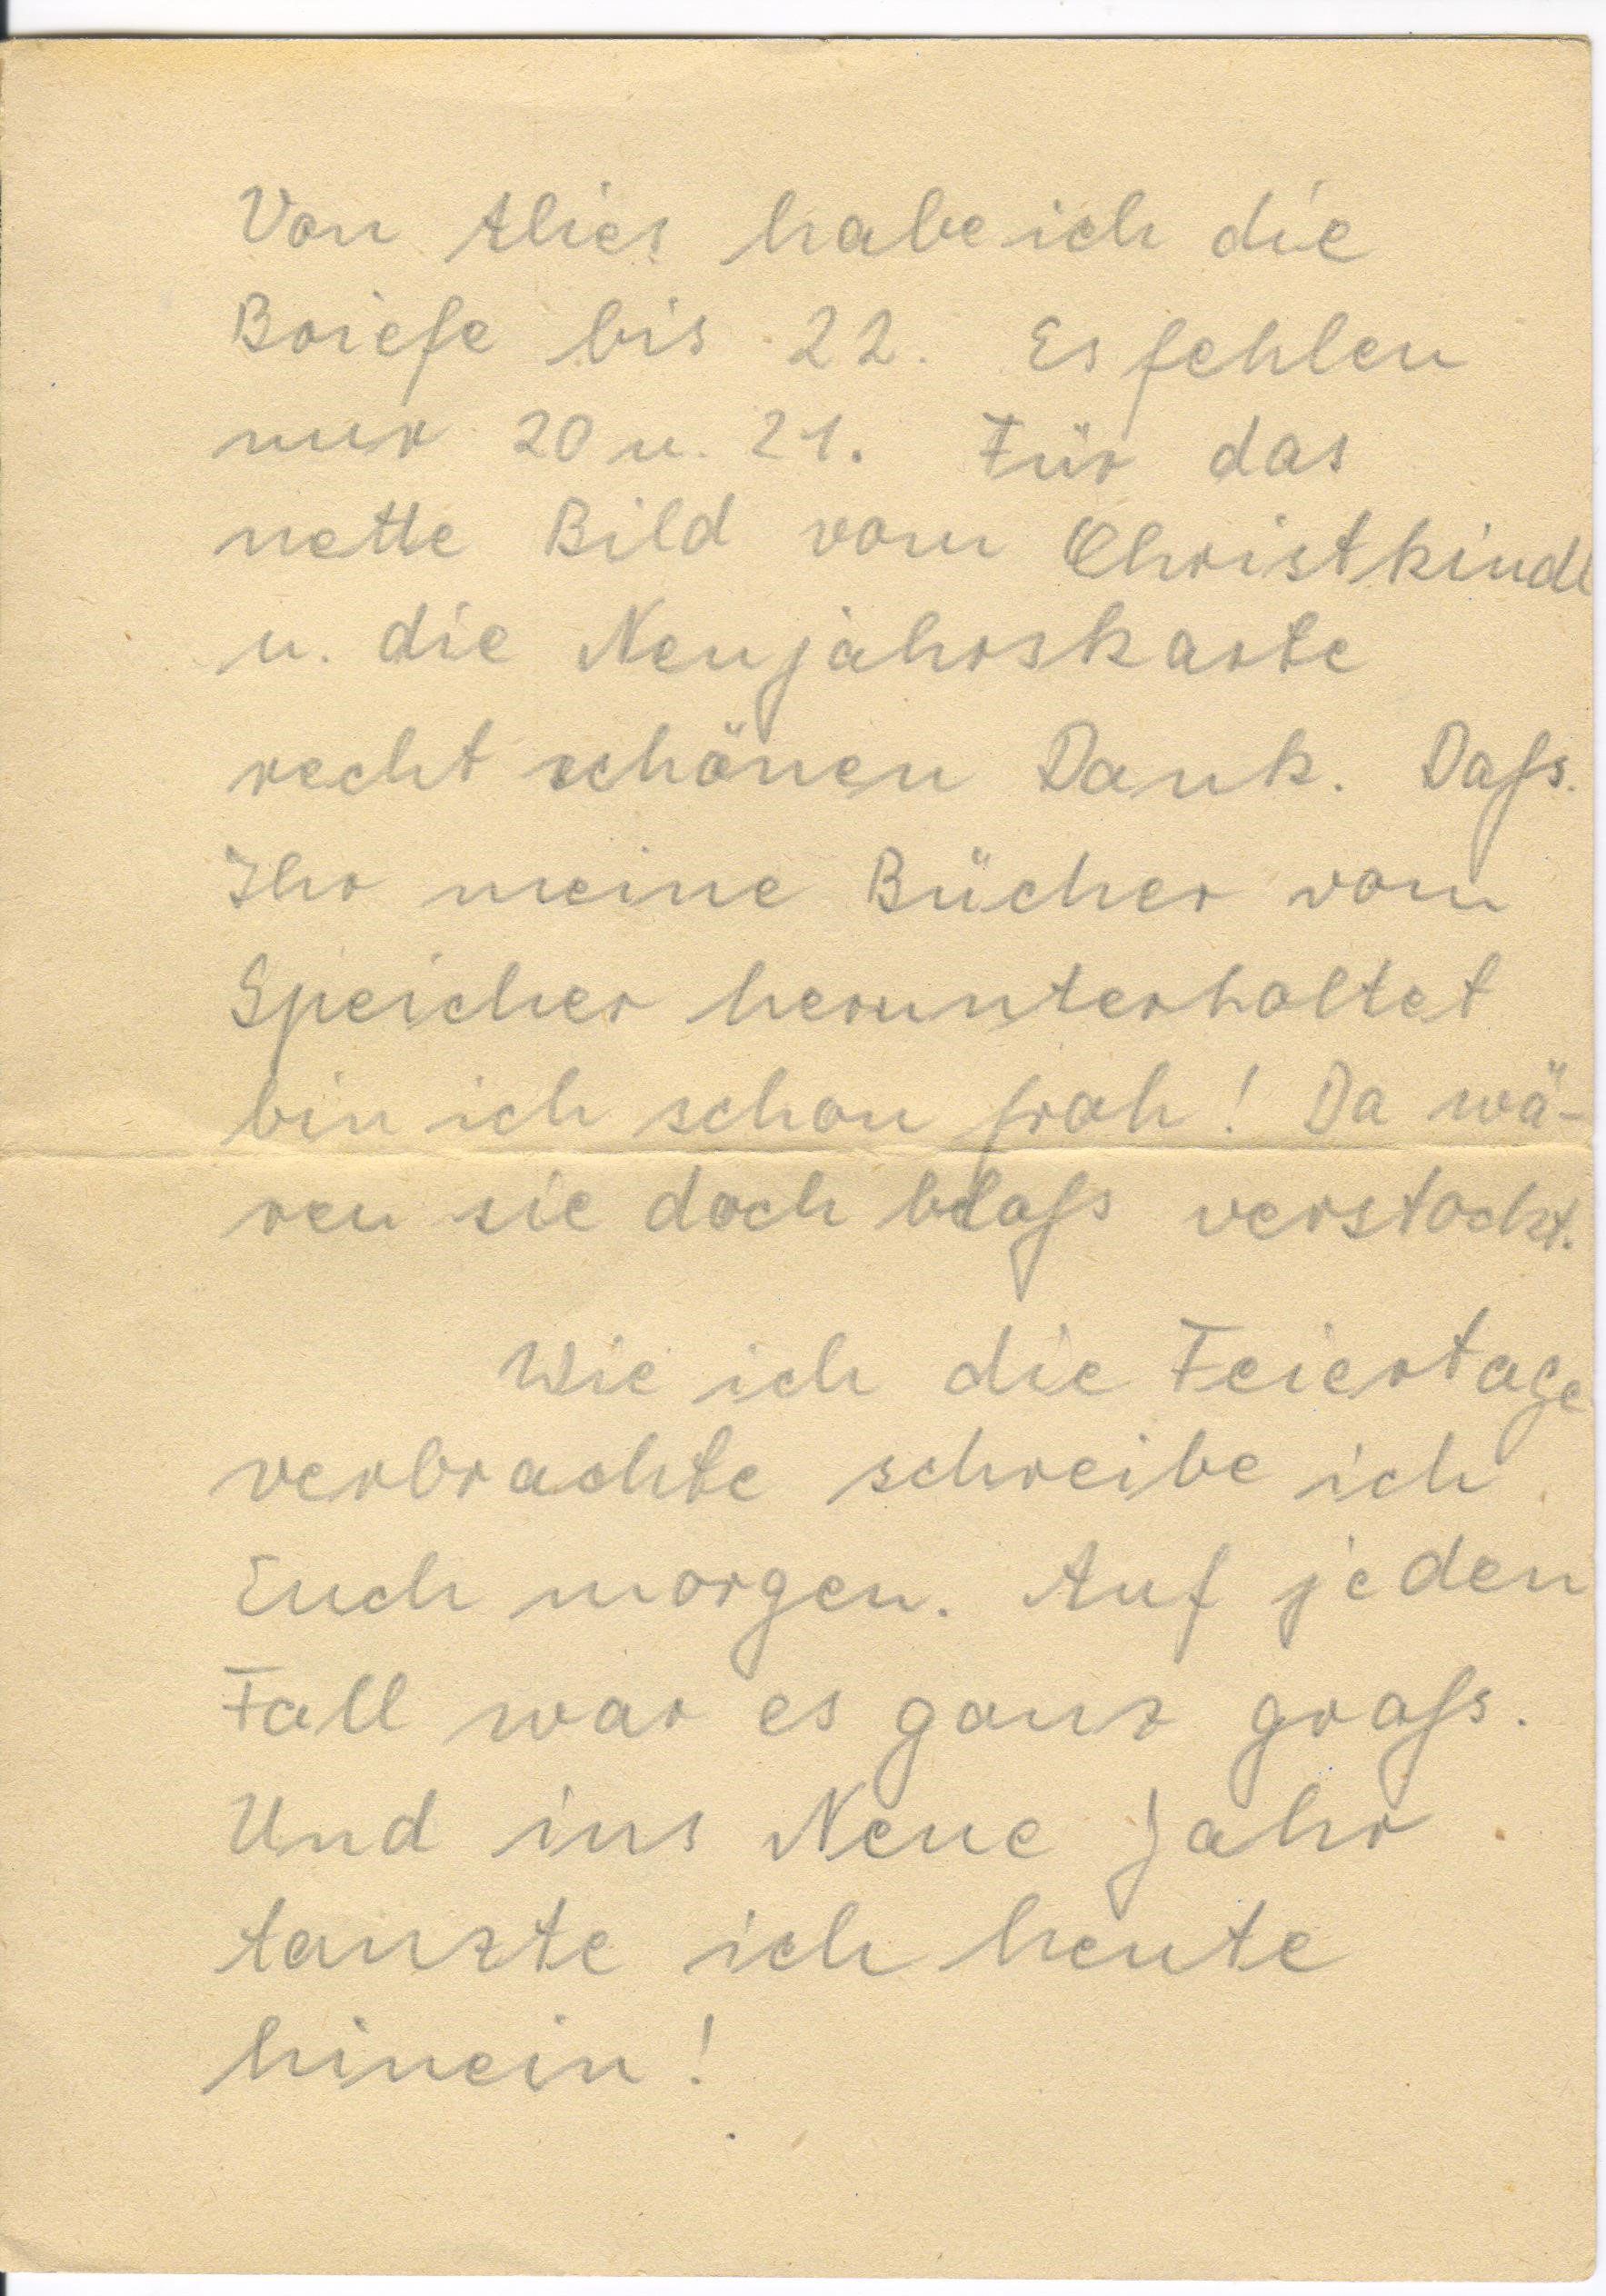 Von Alies habe ich die
Briefe bis 22. Es fehlen
nur 20 u. 21. Für das
nette Bild vom Christkindl
u. die Neujahrskarte
recht schönen Dank. Dass
Ihr meine Bücher vom
Speicher herunterholtet
bin ich schon froh! Da wä-
ren sie doch bloss verstockt.
Wie ich die Feiertage
verbrachte schreibe ich
Euch morgen. Auf jeden
Fall war es ganz gross.
Und ins Neue Jahr
tanzte ich heute
hinein!